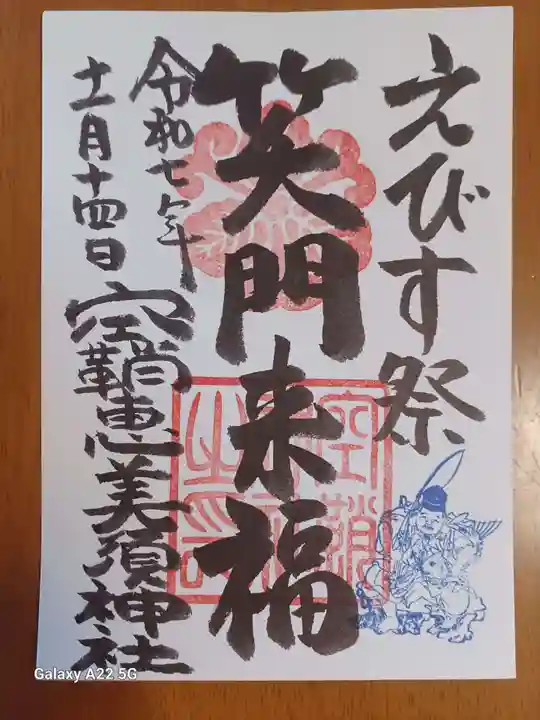 えびす祭
笑門来福
令和七年
十一月十四日
空鞘恵美須神社
空鞘
之印
Galaxy A22 5G